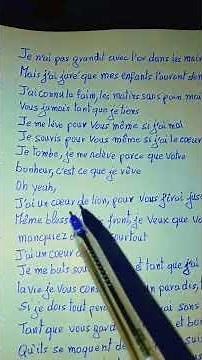 Je n'ai pas grandit avec l'or dans les mains
Mais j'ai juré que mes enfants l'auront dem
J'ai connu la faim, les matins sans pain mai
Vous jamais tant que je tiens
Je me lève pour Vous même si j'ai mal
Je souris pour Vous même si le coeur
Je tombe, je me relève parce que Votre
bonheur, c'est ce que je rêve
Oh yeah,
J'ai un coeur de lion, pour vous j'irai jusq
Même bless front, je veux que vo
manquiez surtout
J'ai un coeur
Je me bats sou et tant que j'ai
la vie Je vous cons un paradis,
Si je dois tout per sans
Tant que vous gard et bon
Qu'ils se moquent de